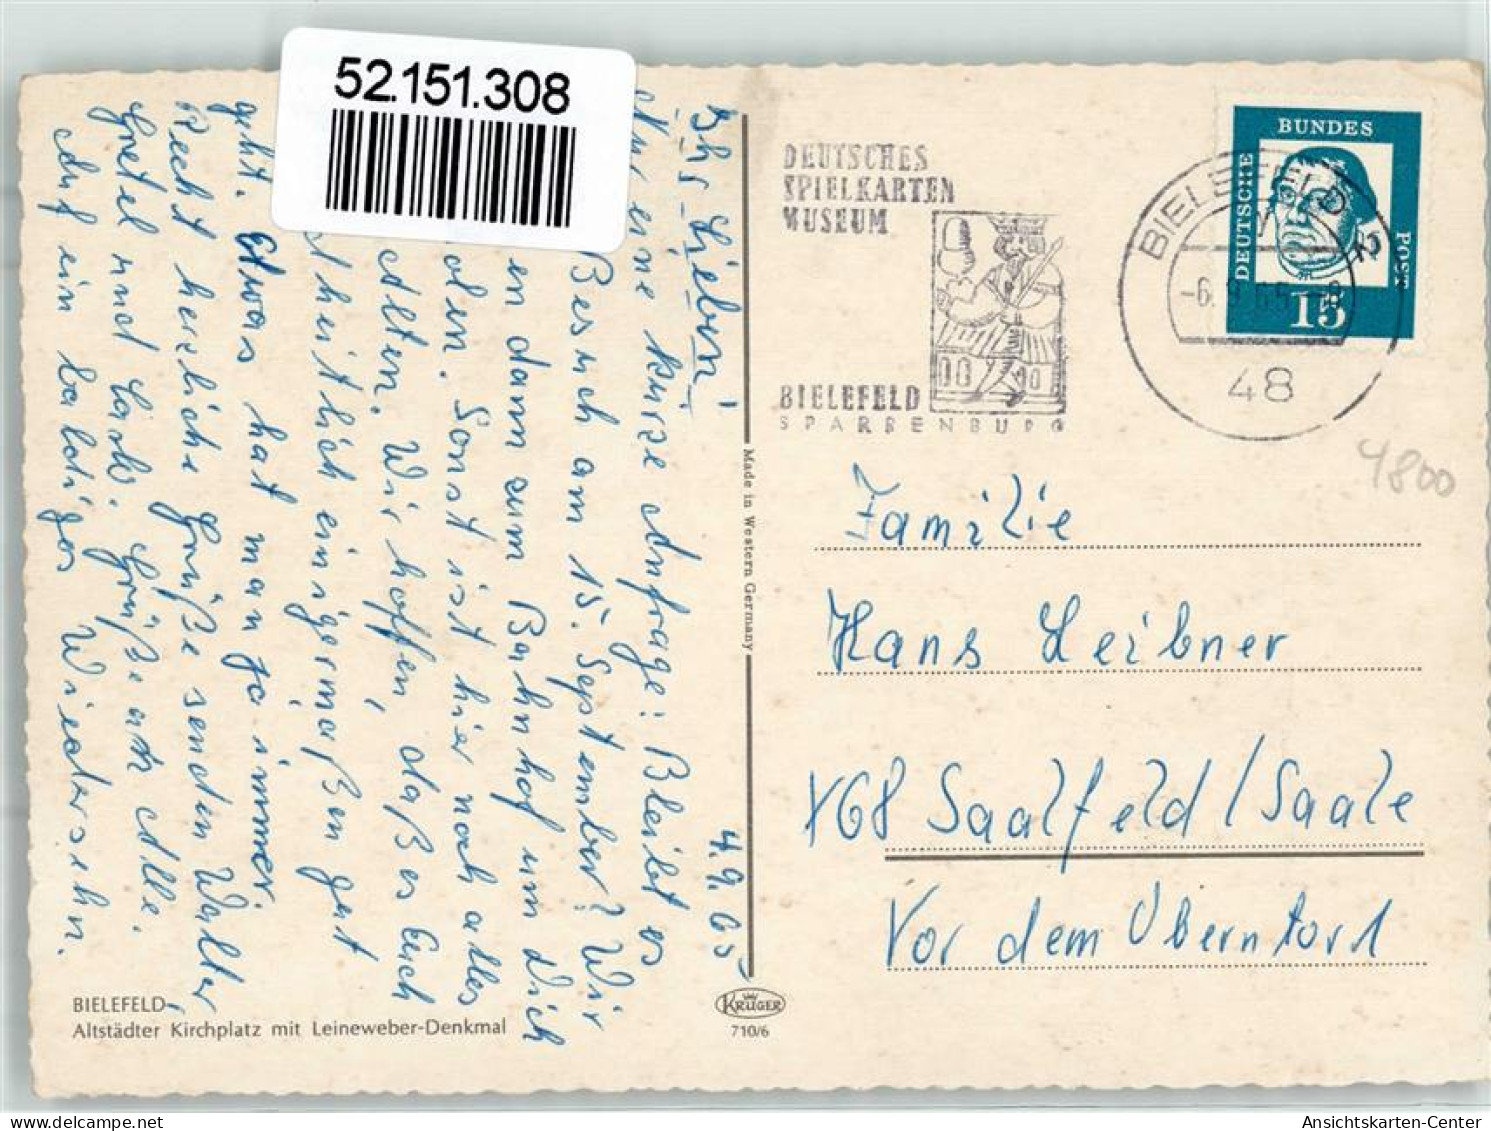 52.151.308
4.9.65
Ihr Lieben!
Nur eine kurze Anfrage: Bleibt es
Besuch am 15. September? Wir
en dann zum Bahnhof um Dich
olen. Sonst ist hier noch alles
Alten. Wir hoffen, daß es Euch
dheitlich einigermaßen gut
geht. Etwas hat man ja immer.
Recht herzliche Grüße senden Walter,
Gretel und Carlo. Grüße an Alle.
Auf ein baldiges Wiedersehn.
BIELEFELD
Altstädter Kirchplatz mit Leineweber-Denkmal
Made in Western Germany
KRÜGER
710/6
DEUTSCHES
SPIELKARTEN
MUSEUM
BIELEFELD
SPARRENBURG
BIELEFELD 2
-6.9.65-8
48
DEUTSCHE
BUNDES
POST
15
4800
Familie
Hans Leibner
X68 Saalfeld/Saale
Vor dem Oberntor 1
Ansichtskarten-Center